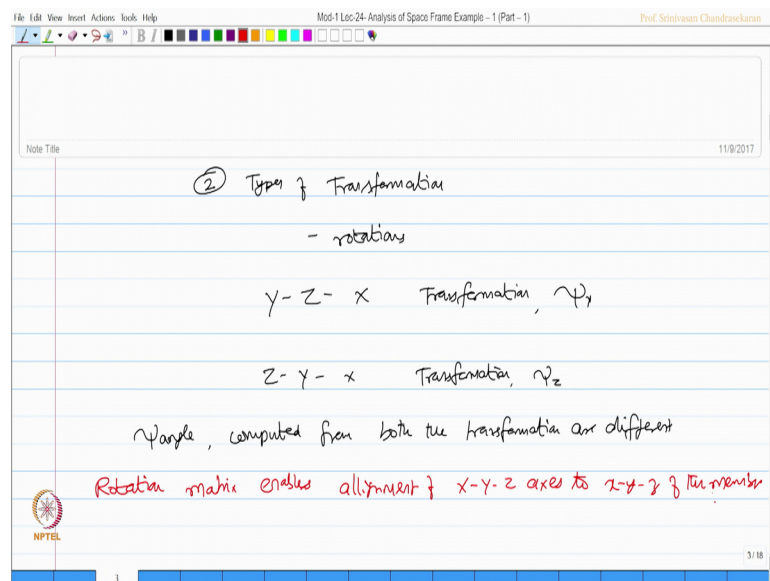 File Edit View Insert Actions Tools Help
Mod-1 Lec-24- Analysis of Space Frame Example – 1 (Part – 1)
Prof. Srinivasan Chandrasekaran
B I
Note Title
11/9/2017
② Types of Transformation
- rotations
Y - Z - X Transformation, Ψy
Z - Y - X Transformation, Ψz
Ψ angle, computed from both the transformation are different
Rotation matrix enables allignment of X-Y-Z axes to x-y-z of the member
NPTEL
3 / 18
3